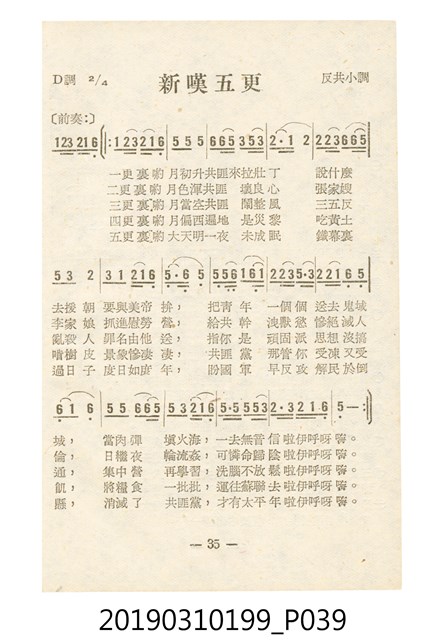 D調 2/4 新嘆五更 反共小調
〔前奏:〕
123 216 :123216 555 665 353 2·1 2 223665
一更裏喲 月初升共匪來拉壯丁 設什麼
二更裏喲 月色渾共匪 壞良心 張家嫂
三更裏喲 月當空共匪 鬧整風 三五反
四更裏喲 月偏西遍地 是災黎 吃黃土
五更裏喲 大天明一夜 未成眠 鐵幕裏
53 2 31 216 5·65 556161 2235·3 22165
去援 朝 要與美帝 拚， 把靑 年 一個個 送去鬼城
李家 娘 抓進慰勞 營， 給共 幹 洩獸慾 慘絕滅人
亂殺 人 罪名由他 送， 指你 是 頑固派 思想沒搞
啃樹 皮 景象慘凄 凄， 共匪 黨 那管你 受凍又受
過日 子 度日如度 年， 盼國 軍 早反攻 解民於倒
61 6 55 665 53216 5·5553 2·3216 5—:
城， 當肉彈 塡火海，一去無管 信 啦伊呼呀 嗨。
倫， 日繼夜 輪流姦，可憐命歸 陰 啦伊呼呀 嗨。
通， 集中營 再學習，洗腦不放 鬆 啦伊呼呀 嗨。
飢， 將糧食 一批批，運往蘇聯 去 啦伊呼呀 嗨。
懸， 消滅了 共匪黨，才有太平 年 啦伊呼呀 嗨。
— 35 —
20190310199_P039